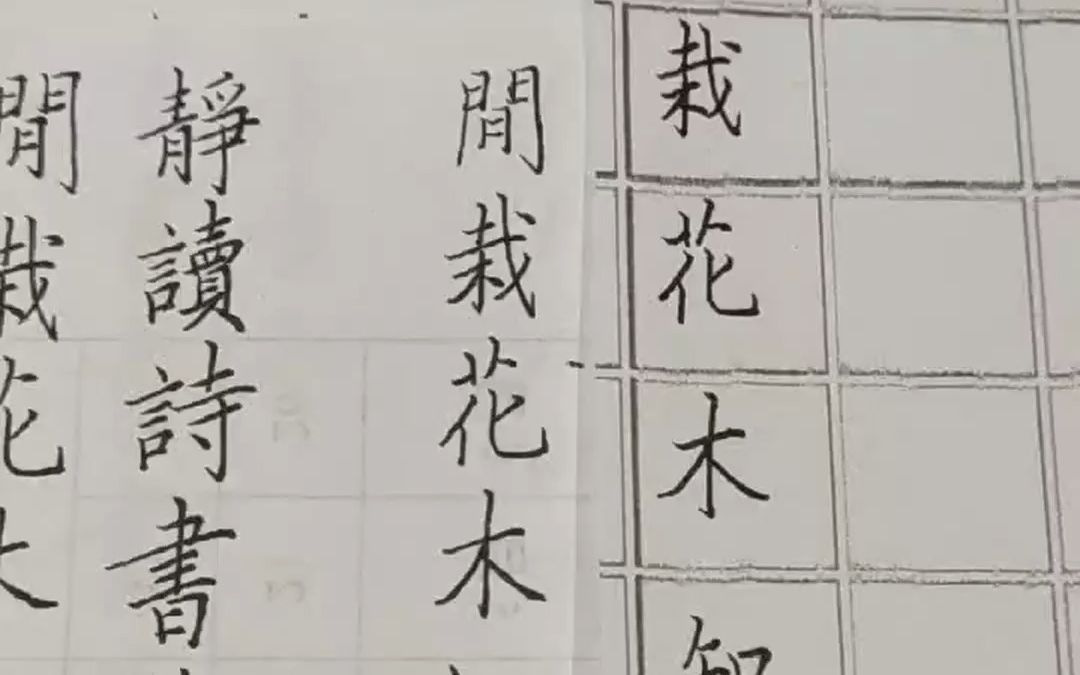 栽花木知
閒栽花木
靜讀詩書
閒栽花木